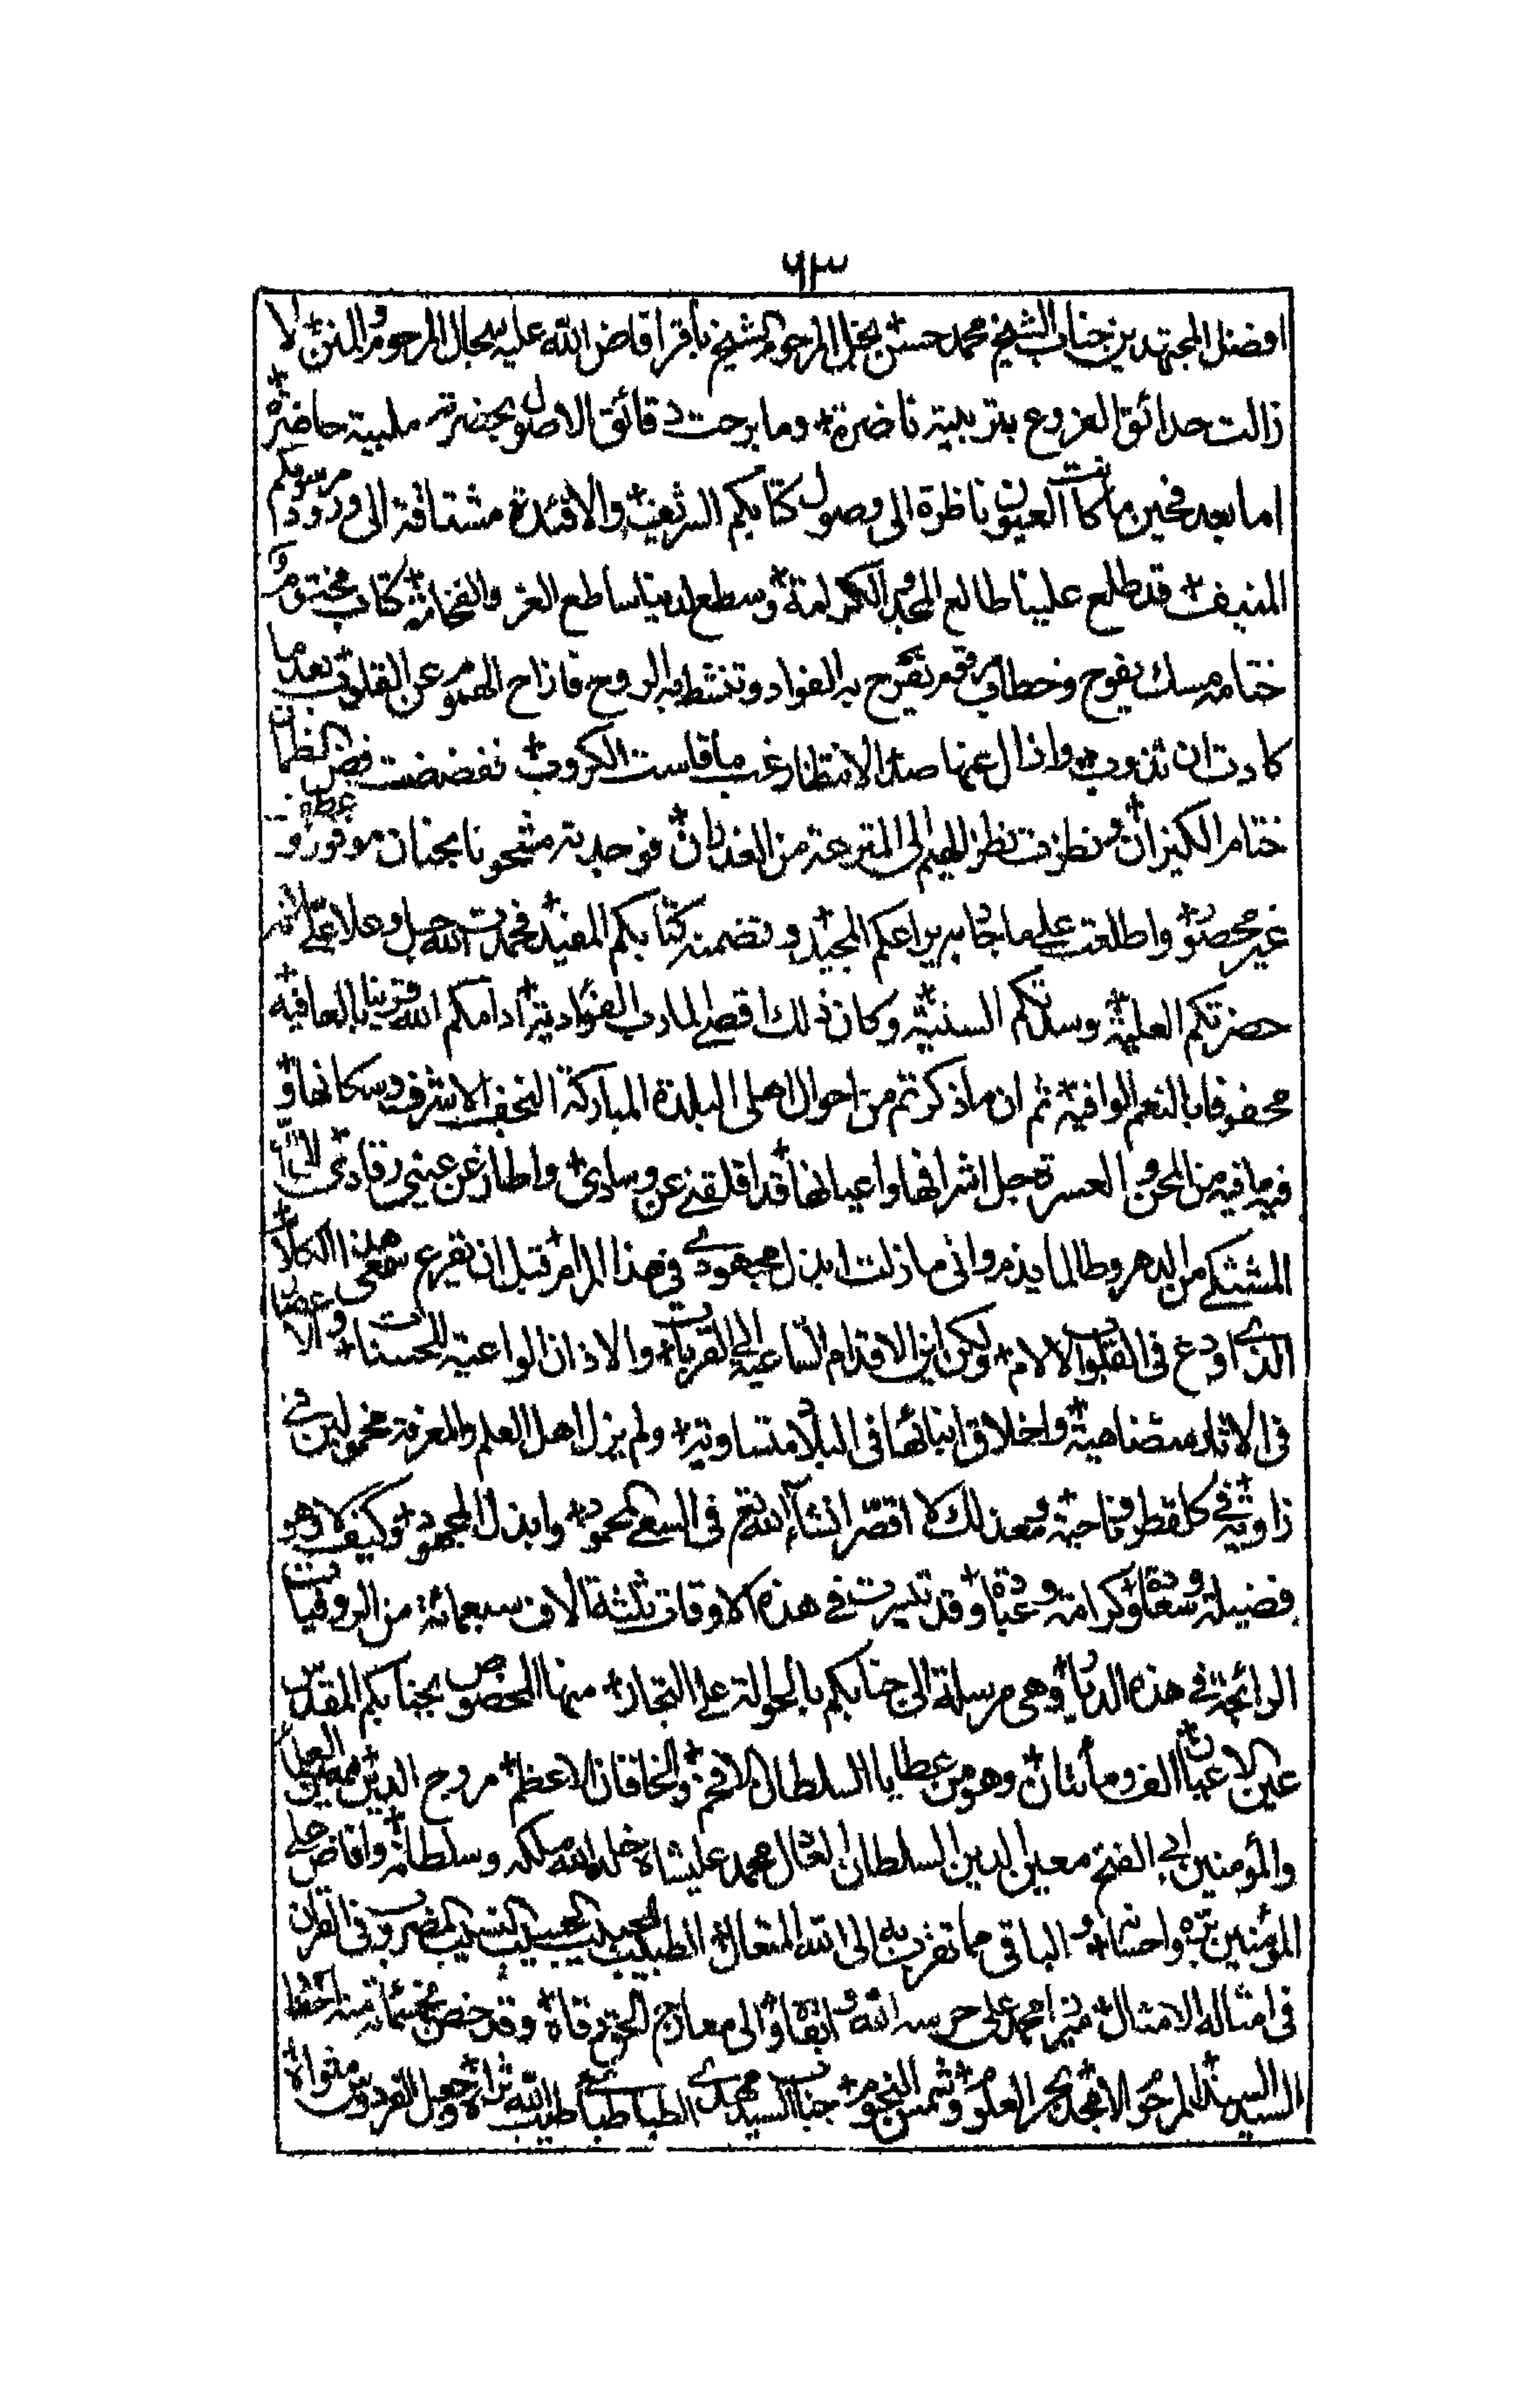 ٦٣
افضل المجتهدين جناب الشيخ محمد حسن نجل المرحوم الشيخ باقر افاض الله عليه سجال المرحوم والمنن لا
زالت حدائق الفروع بتربيته ناضرة وما برحت دقائق الاصول بحضرته ملبية حاضرة
اما بعد فحين ما كانت العيون ناظرة الى وصول كتابكم الشريف والافئدة مشتاقة الى ورود مرسومكم
المنيف قد طلع علينا طالع المجد والكرامة وسطع لدينا ساطع العز والفخامة كتاب مختوم و
ختامه مسك يفوح وخطاب مرقوم تفرح به الفواد وتنشط به الروح فازاح الهموم عن القلوب بعد ما
كادت ان تذوب واذال عنها صدأ الانتظار غب ما قاست الكروب ففضضت فض الظمأن
ختام الكيزان ونظرت نظر الهيم الى المترعة من الغدران فوجدته مشحونا بجنان موفورة و
غير محصو واطلعت على ما جا به يراعكم المجيد وتضمنه كتابكم المفيد فحمدت الله جل وعلا على
حضرتكم العلية وسدتكم السنية وكان ذلك اقصى المارب الفؤادية ادامكم الله قرينا بالعافية
محفوفا بالنعم الوافية ثم ان ما ذكرتم من احوال اهل البلدة المباركة النجف الاشرف وسكانها و
فيه ما فيه من المحن والعسرة جل اشرافها واعيانها قد اقلقني عن وسادي واطار عن عيني رقادي
المشتكى من الدهر وطالما يذم واني ما زلت ابذل مجهودي في هذا المرام قبل ان يقرع سمعى هذا الكلام
الذي اودع فى القلوب الالام ولكن اين الاقدام الساعية الى القربات والاذان الواعية للحسنات و
فى الاتلاد متضاهية واخلاق ابنائها فى البلاد متساوية ولم يزل اهل العلم والمعرفة مخمولين في
زاوية في كل قطر وناحية ومع ذلك لا اقصّر انشاء الله تعم فى السعى المحمود وابذل المجهود وكيف لا وهو
فضيلة وسعادة وكرامة وعبادة وقد تيسرت في هذه الاوقات ثلثة الاف سبعمائة من الروفيات
الرائجة في هذه الديار وهى مرسلة الى جنابكم بالحوالة على التجار منها المخصوص بجنابكم المقدس
عين الاعيان الف ومأتان وهو من عطايا السلطان الافخم والخاقان الاعظم مروج الدين
والمؤمنين ابي الفتح معين الدين السلطان العادل محمد عليشاه خلد الله ملكه وسلطانه وافاض على
المؤمنين بره واحسانه والباقى مما تقرب به الى الله المتعال الطبيب اللبيب الحسيب النسيب المضروب في القران
فى امثاله الامثال ميرزا محمد على حرسه الله وابقاه والى معارج الخير رقاه وقد خص بخمسمائة منه احفاد
السيد السند المرحوم الامجد بحر العلوم وشمس النجوم جناب السيد مهدي الطباطبائي طيب الله ثراه وجعل الفردوس مثواه